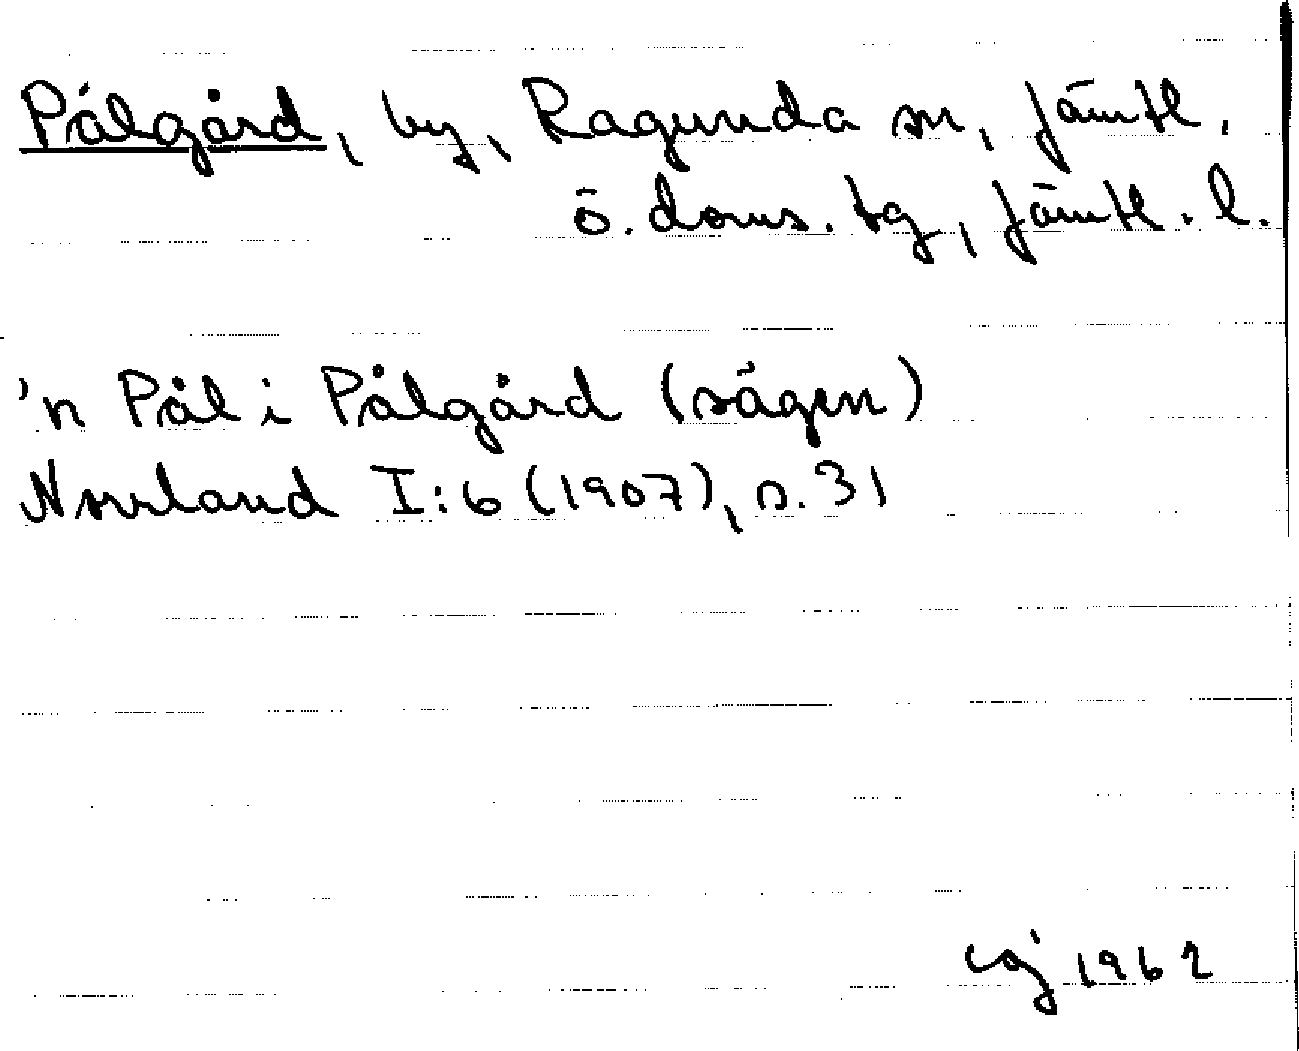 Pålgård, by, Ragunda sn, Jämtl.
ö. doms. tg, Jämtl. l.
'n Pål i Pålgård (sägen)
Norrland I:6 (1907), s. 31
1962